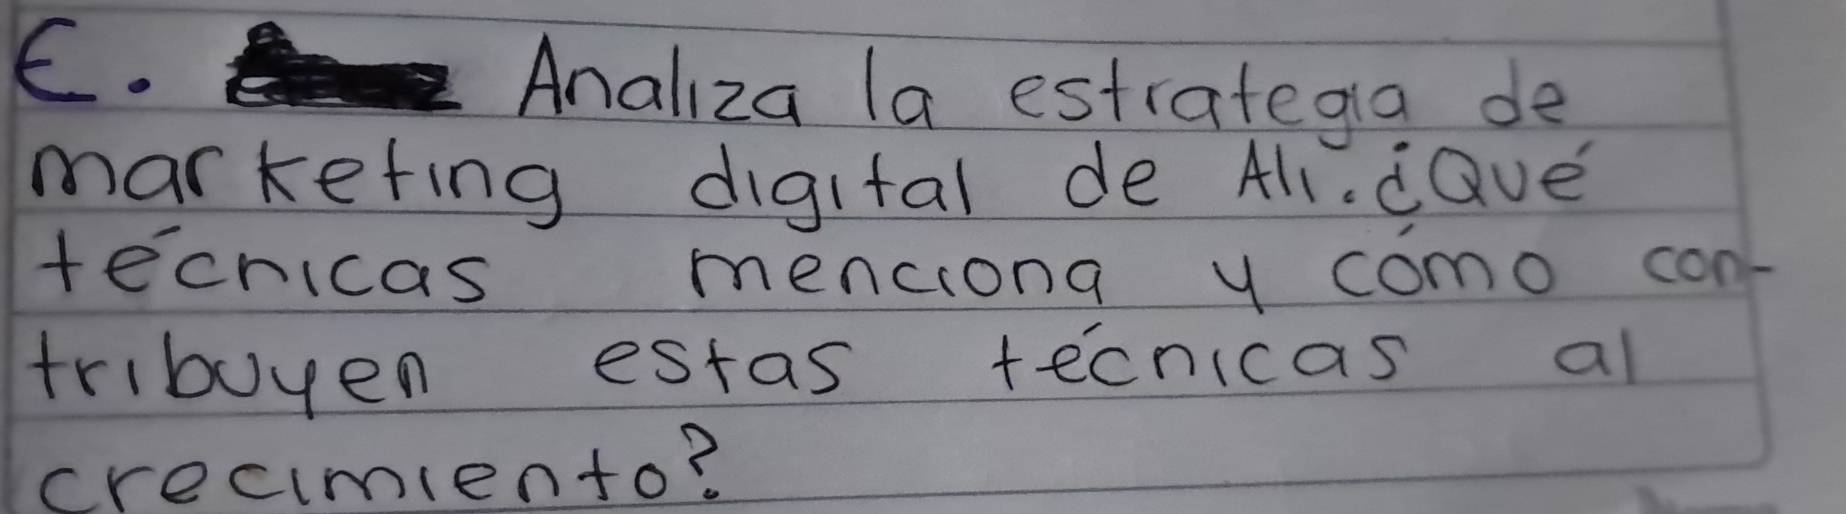 E. Analiza la estrategia de
marketing digital de Ali. ¿Qué
técnicas menciona y cómo con-
tribuyen estas técnicas al
crecimiento?